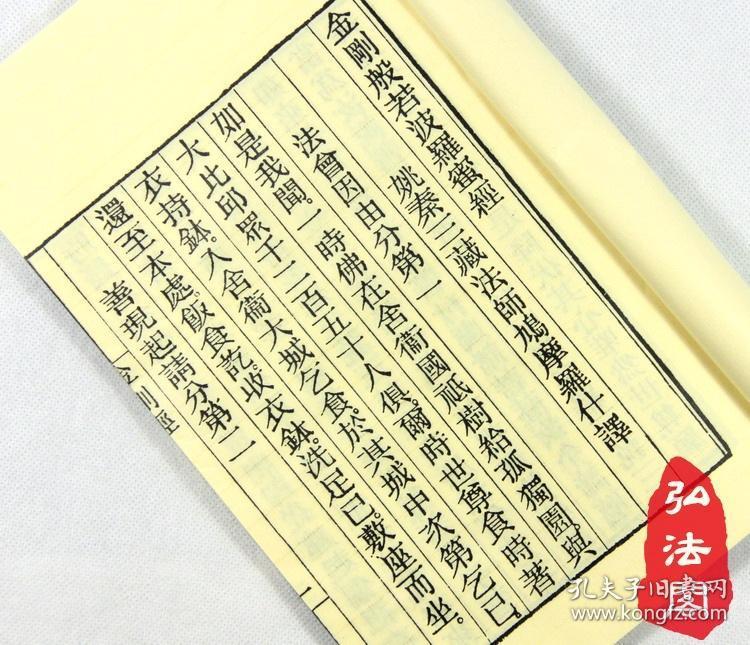 金剛般若波羅蜜經
姚秦三藏法師鳩摩羅什譯
法會因由分第一
如是我聞。一時佛在舍衞國祇樹給孤獨園。與
大比邱眾千二百五十人俱。爾時世尊食時著
衣持鉢。入舍衞大城乞食。於其城中次第乞已。
還至本處。飯食訖。收衣鉢。洗足已。敷座而坐。
善現起請分第二
金剛經
一
弘法閣
孔夫子旧书网
www.kongfz.com